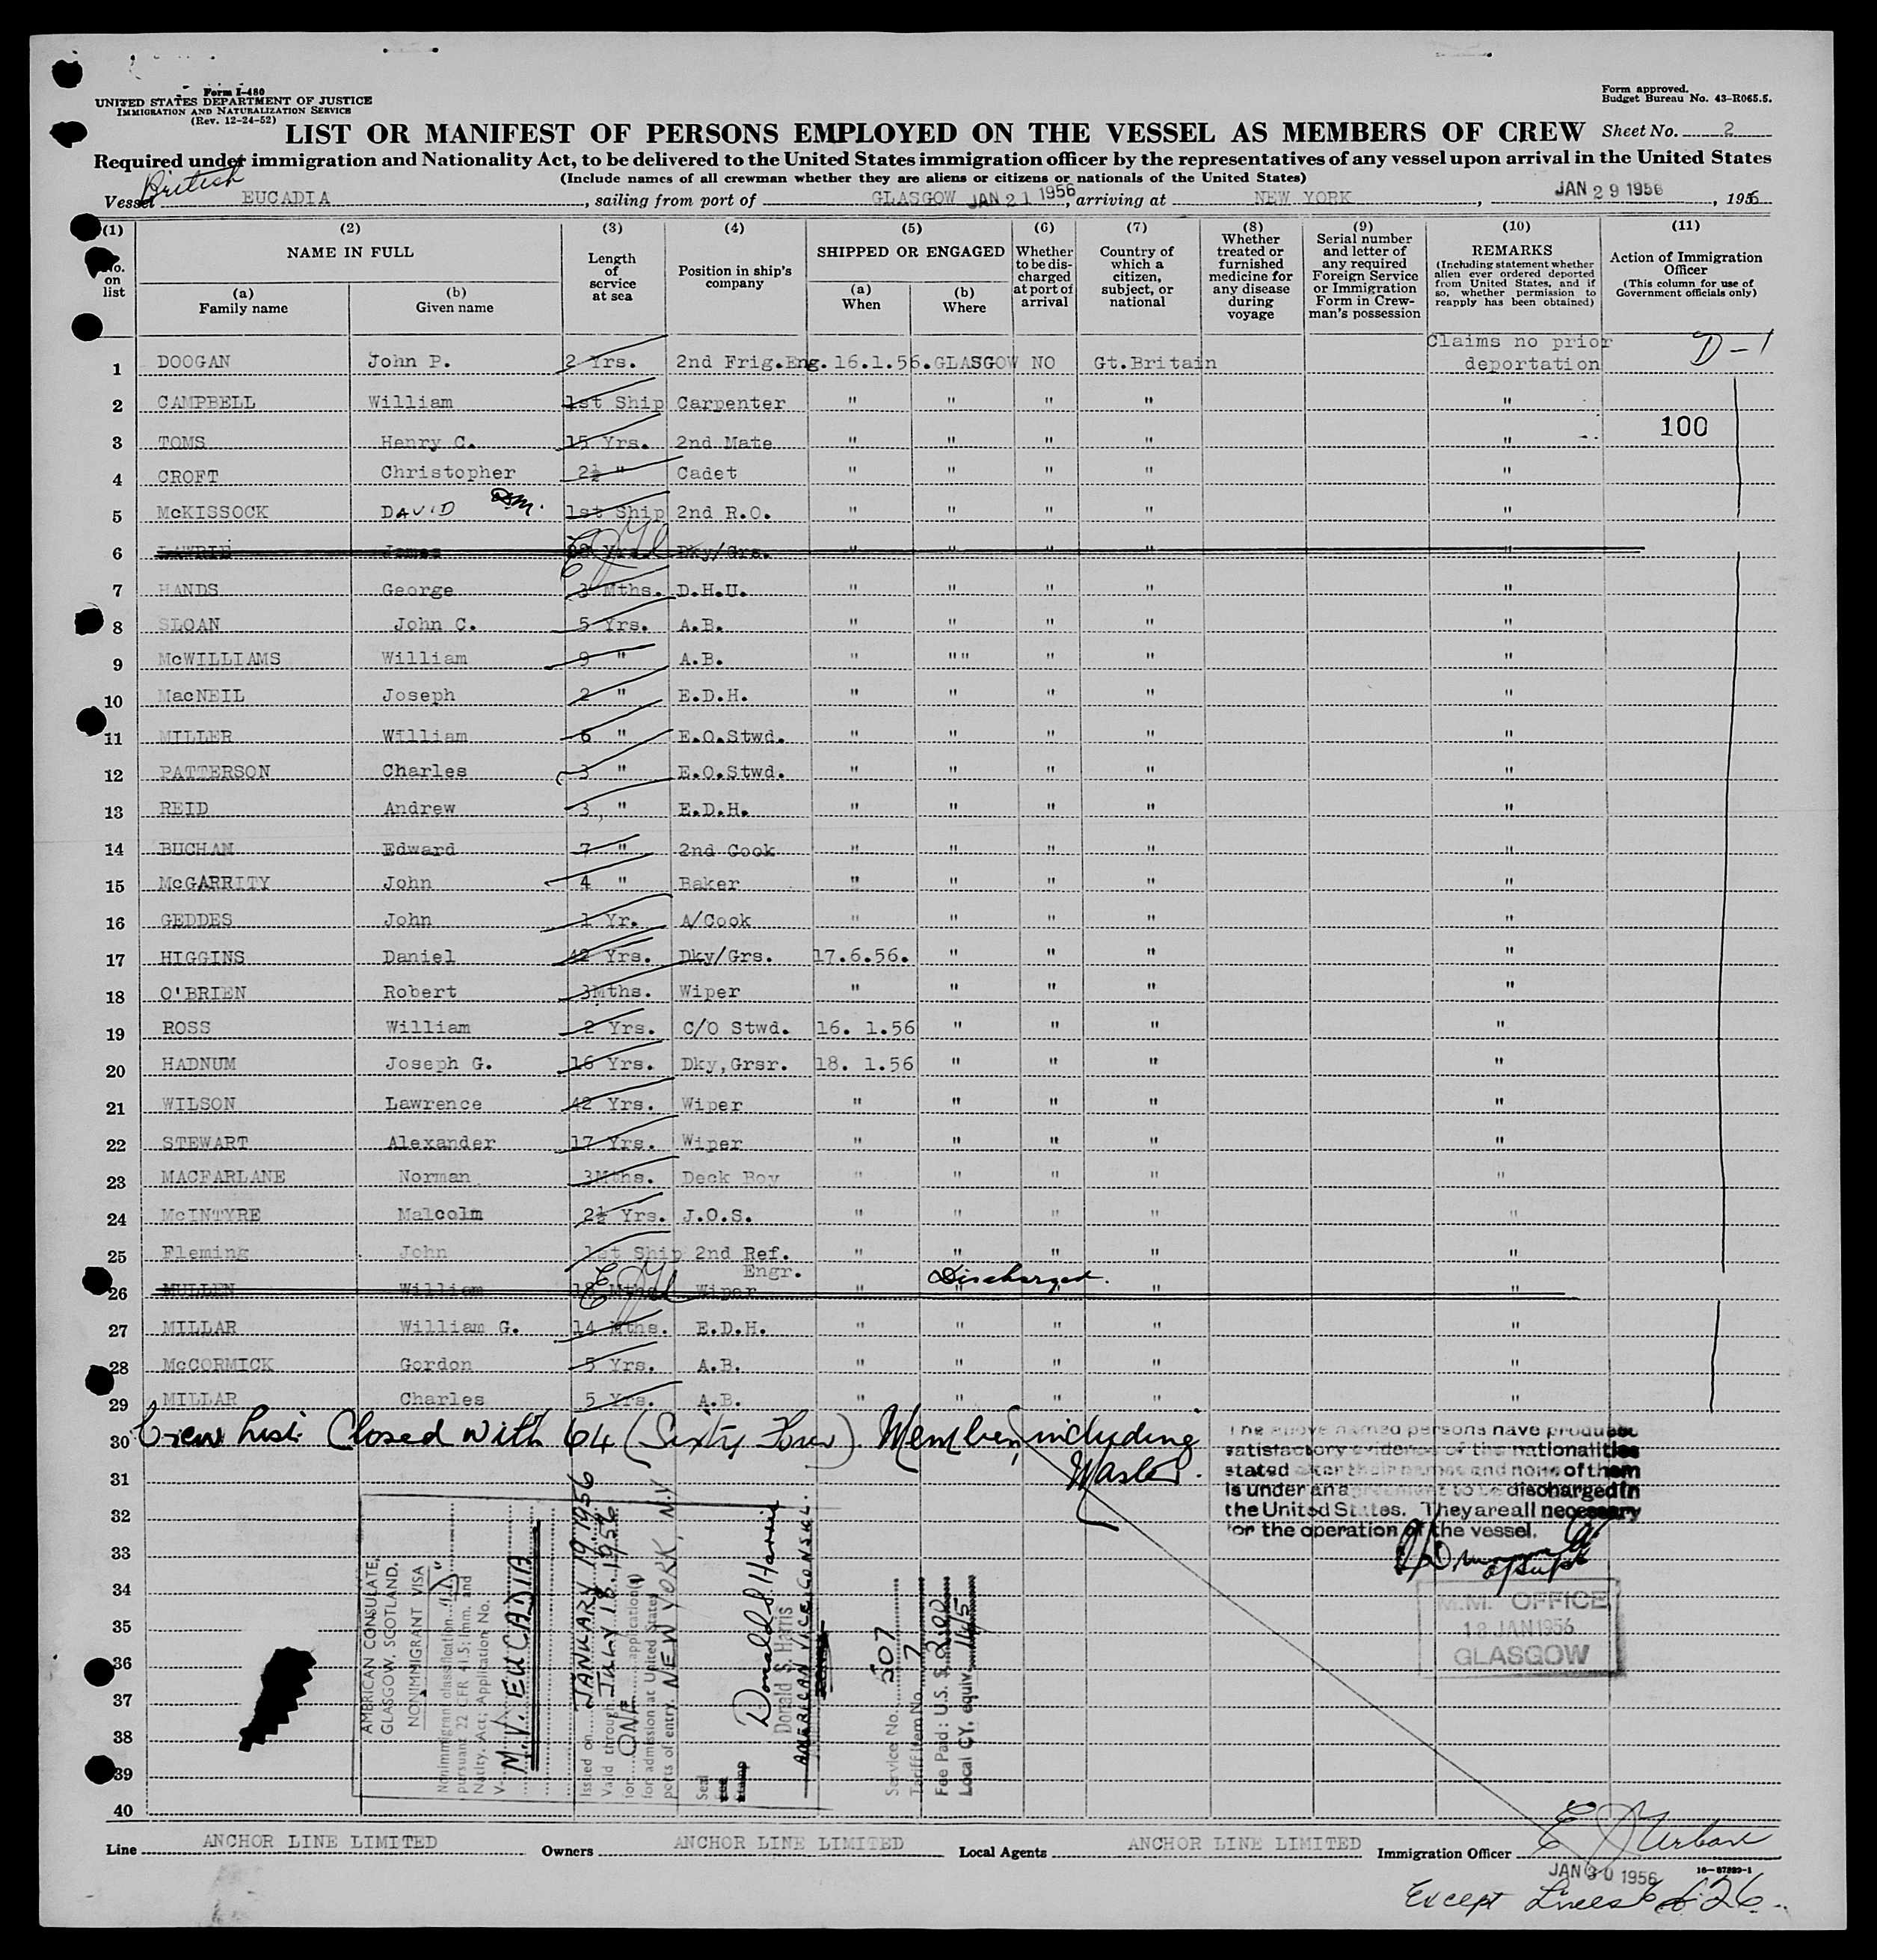 Form I-480
UNITED STATES DEPARTMENT OF JUSTICE
IMMIGRATION AND NATURALIZATION SERVICE
(Rev. 12-24-52)
Form approved.
Budget Bureau No. 43-R065.5.
LIST OR MANIFEST OF PERSONS EMPLOYED ON THE VESSEL AS MEMBERS OF CREW Sheet No. 2
Required under immigration and Nationality Act, to be delivered to the United States immigration officer by the representatives of any vessel upon arrival in the United States
(Include names of all crewman whether they are aliens or citizens or nationals of the United States)
British
Vessel EUCADIA, sailing from port of GLASGOW JAN 21 1956, arriving at NEW YORK, JAN 29 1956, 1956
(1) (2) (3) (4) (5) (6) (7) (8) (9) (10) (11)
No. on list
NAME IN FULL
(a) Family name
(b) Given name
Length of service at sea
Position in ship's company
SHIPPED OR ENGAGED
(a) When
(b) Where
Whether to be discharged at port of arrival
Country of which a citizen, subject, or national
Whether treated or furnished medicine for any disease during voyage
Serial number and letter of any required Foreign Service or Immigration Form in Crewman's possession
REMARKS
(Including statement whether alien ever ordered deported from United States, and if so, whether permission to reapply has been obtained)
Action of Immigration Officer
(This column for use of Government officials only)
1 DOOGAN John P. 2 Yrs. 2nd Frig.Eng. 16.1.56. GLASGOW NO Gt.Britain Claims no prior deportation D-1
2 CAMPBELL William 1st Ship Carpenter " " " " "
3 TOMS Henry C. 15 Yrs. 2nd Mate " " " " " 100
4 CROFT Christopher 2½ " Cadet " " " " "
5 McKISSOCK DAVID DSM. 1st Ship 2nd R.O. " " " " "
6 LAWRIE James Yrs. Dky/Grs. " " " " "
7 HANDS George 3 Mths. D.H.U. " " " " "
8 SLOAN John C. 5 Yrs. A.B. " " " " "
9 McWILLIAMS William 9 " A.B. " "" " " "
10 MacNEIL Joseph 2 " E.D.H. " " " " "
11 MILLER William 6 " E.O.Stwd. " " " " "
12 PATTERSON Charles 3 " E.O.Stwd. " " " " "
13 REID Andrew 3 " E.D.H. " " " " "
14 BUCHAN Edward 7 " 2nd Cook " " " " "
15 McGARRITY John 4 " Baker " " " " "
16 GEDDES John 1 Yr. A/Cook " " " " "
17 HIGGINS Daniel 42 Yrs. Dky/Grs. 17.6.56. " " " "
18 O'BRIEN Robert 3Mths. Wiper " " " " "
19 ROSS William 2 Yrs. C/O Stwd. 16. 1.56 " " " "
20 HADNUM Joseph G. 16 Yrs. Dky,Grsr. 18. 1.56 " " " "
21 WILSON Lawrence 42 Yrs. Wiper " " " " "
22 STEWART Alexander 17 Yrs. Wiper " " " " "
23 MACFARLANE Norman 3Mths. Deck Boy " " " " "
24 McINTYRE Malcolm 2½ Yrs. J.O.S. " " " " "
25 Fleming John 1st Ship 2nd Ref. Engr. " " " " "
26 MULLEN William 18 Mths Wiper " Discharged. " " " "
27 MILLAR William G. 14 Mths. E.D.H. " " " " "
28 McCORMICK Gordon 5 Yrs. A.B. " " " " "
29 MILLAR Charles 5 Yrs. A.B. " " " " "
30 Crew List Closed with 64 (Sixty Four) Members including
31 Master.
32
33
34
35
36
37
38
39
40
The above named persons have produced
satisfactory evidence of the nationalities
stated after their names and none of them
is under an agreement to be discharged in
the United States. They are all necessary
for the operation of the vessel.
M.M. OFFICE
18 JAN 1956
GLASGOW
AMERICAN CONSULATE,
GLASGOW, SCOTLAND.
NONIMMIGRANT VISA
Nonimmigrant classification "D"
pursuant 22 CFR 41.5; Imm. and
Natlty. Act; Application No.
V-
M.V. EUCADIA
Issued on JANUARY 19 1956
Valid through JULY 18, 1956
for ONE application(s)
for admission at United States
ports of entry. NEW YORK, N.Y.
Donald S. Harris
Donald S. Harris
AMERICAN VICE CONSUL.
Seal
Service No. 507
Tariff Item No. 7
Fee Paid: U.S. $
Local CY. equiv.
Line ANCHOR LINE LIMITED Owners ANCHOR LINE LIMITED Local Agents ANCHOR LINE LIMITED Immigration Officer E J Urban
JAN 30 1956
16-67889-1
Except Lines 6 & 26.